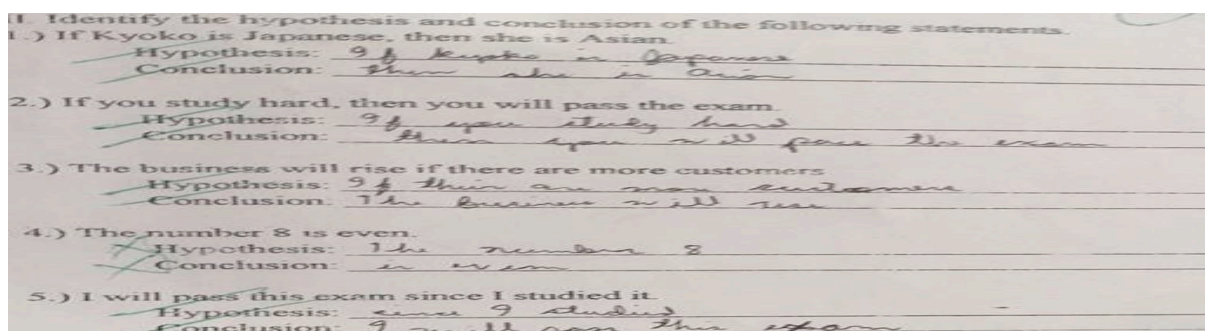 II. Identify the hypothesis and conclusion of the following statements.
1.) If Kyoko is Japanese, then she is Asian.
Hypothesis: If Kyoko is Japanese
Conclusion: then she is Asian
2.) If you study hard, then you will pass the exam.
Hypothesis: If you study hard
Conclusion: then you will pass the exam
3.) The business will rise if there are more customers
Hypothesis: If their are more customers
Conclusion: The business will rise
4.) The number 8 is even.
Hypothesis: The number 8
Conclusion: is even
5.) I will pass this exam since I studied it.
Hypothesis: since I studied
Conclusion: I will pass this exam